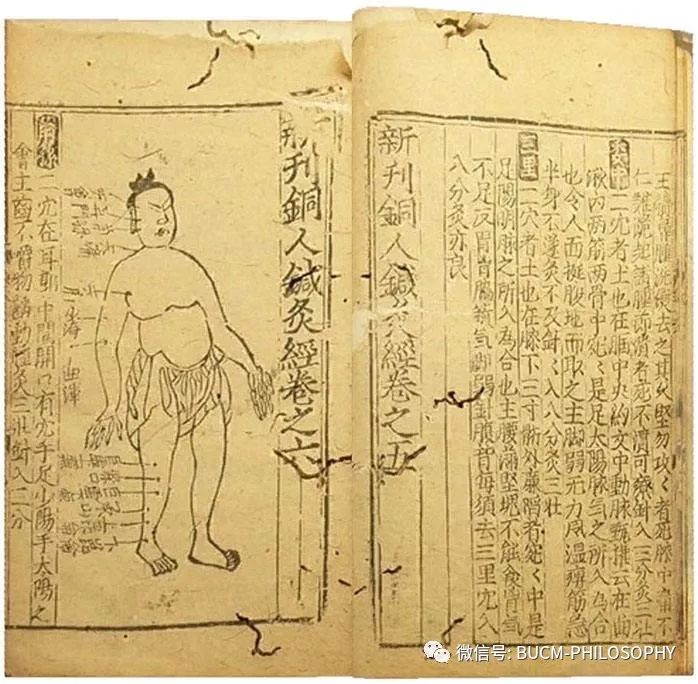 去之其 堅勿攻々者死脉中 不
仁 起 腰 消者死不消可療針入三分灸三壯
委中 二穴者土也在膕中央約文中動脉甄權云在曲
內兩筋兩骨中宛々是足太陽脉氣之所入為合
也令人面挺腹地而取之主脚弱无力風溫痺筋急
半身不遂灸不及針々入八分灸三壯
三里 二穴者土也在膝下三寸䯒外廉陷者宛々中是
足陽明脉之所入為合也主腰滿堅塊不能食胃氣
不足反胃胷脇 氣脚弱針腹背每須去三里穴入
八分灸亦良
新刊銅人鍼灸經卷之五
新刊銅人鍼灸經卷之六
曲澤
二穴在耳 中間開口有穴手足少陽手太陽之
會主齒不嚼物齲動 灸三壯針入二分
微信号: BUCM-PHILOSOPHY